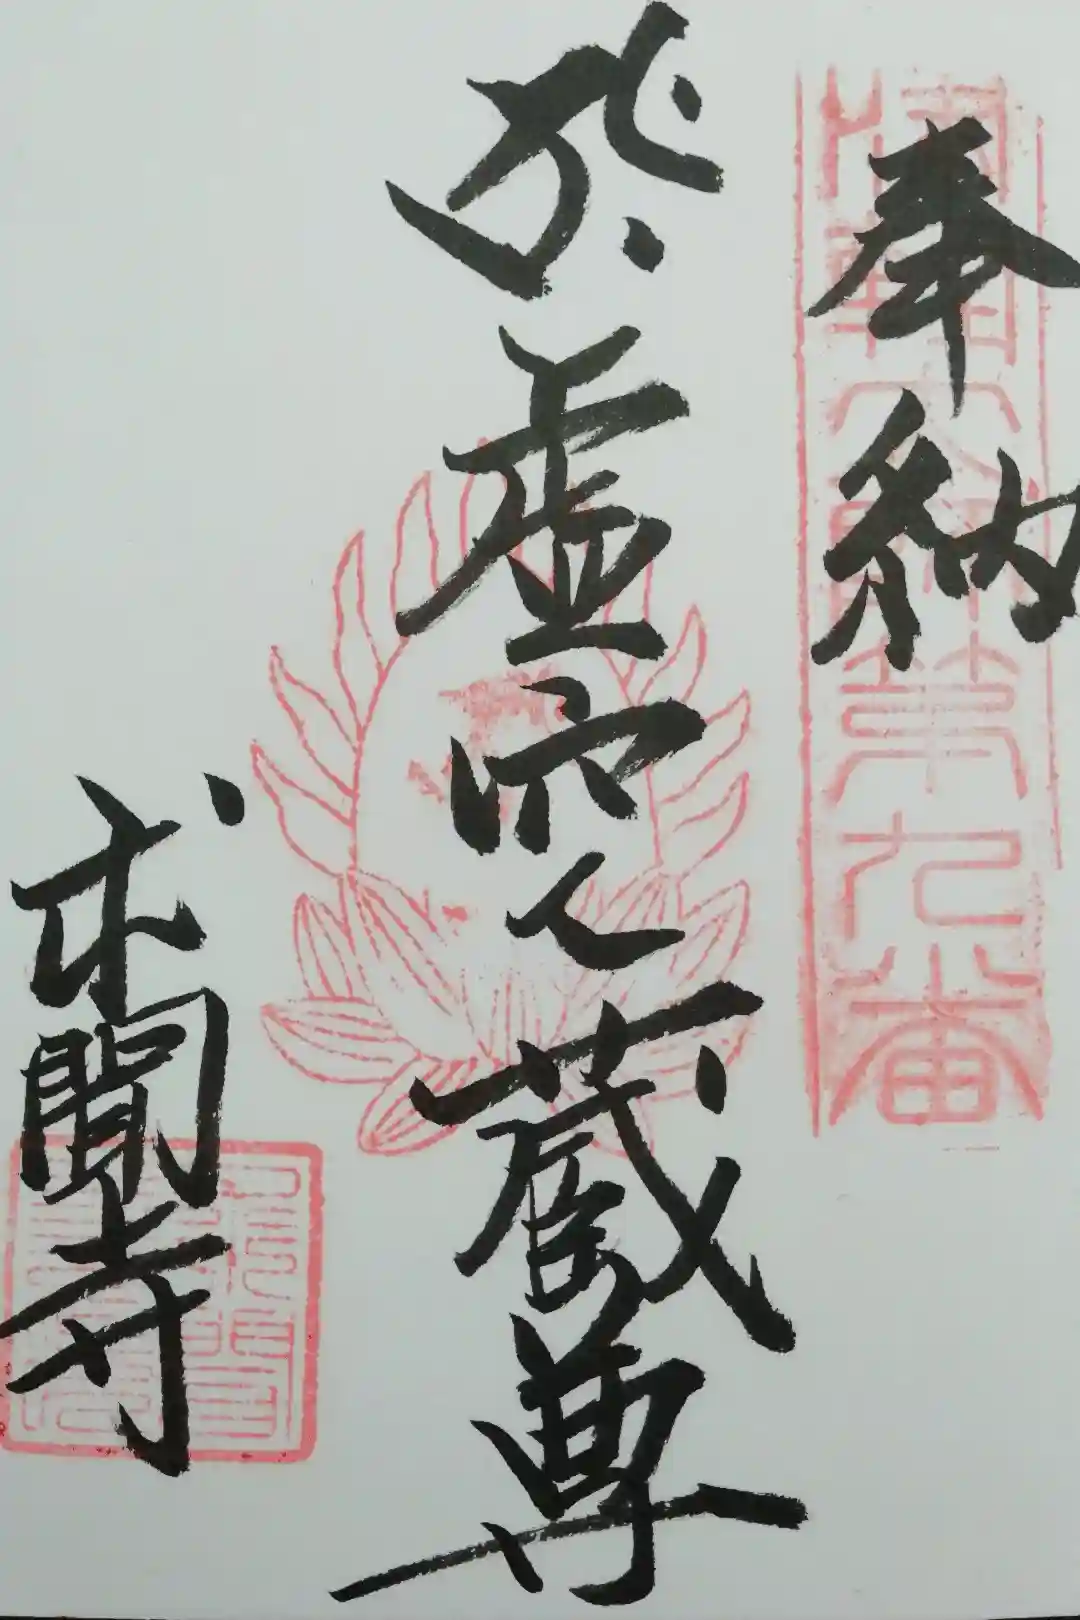 奉納
第九番
虚空蔵尊
求聞寺